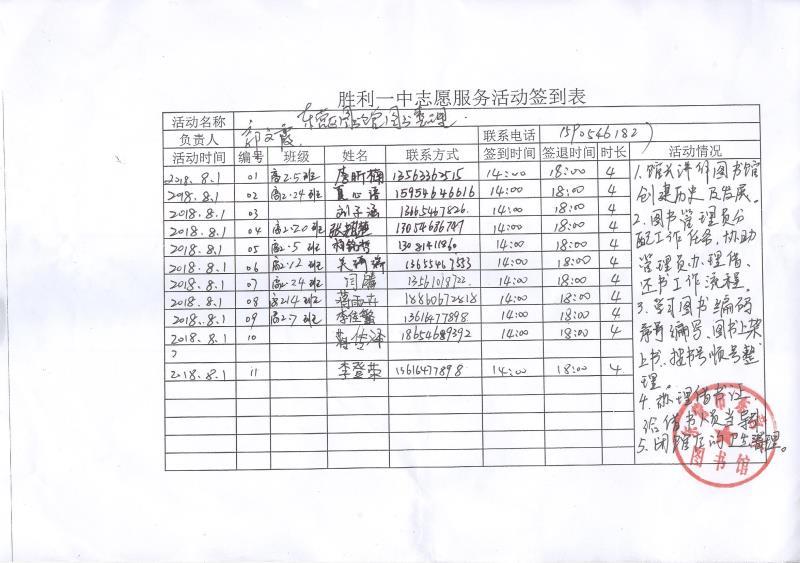 胜利一中志愿服务活动签到表
活动名称 东营区图书馆图书整理
负责人 郭文霞 联系电话
活动时间 编号 班级 姓名 联系方式 签到时间 签退时间 时长 活动情况
2018.8.1 01 高2.5班 13563362515 14:00 18:00 4
2018.8.1 02 高2.24班 夏心语 15954646616 14:00 18:00 4
2018.8.1 03 刘子涵 13465467826 14:00 18:00 4
2018.8.1 04 高2.20班 14:00 18:00 4
2018.8.1 05 高2.5班 14:00 18:00 4
2018.8.1 06 高2.12班 13655467533 14:00 18:00 4
2018.8.1 07 高2.24班 14:00 18:00 4
2018.8.1 08 高2.14班 18860672818 14:00 18:00 4
2018.8.1 09 高2.7班 13616477898 14:00 18:00 4
2018.8.1 10 18654689392 14:00 18:00 4
2018.8.1 11 李登荣 14:00 18:00 4
1.馆长讲解图书馆
创建历史及发展。
2.图书管理员分
配工作任务,协助
管理员办理借、
还书工作流程。
3.学习图书编码
编写、图书上架
上书、按书号顺号整
理。
4.办理借书证
给借书人员当导引
5.闭馆后的卫生清理。
图书馆